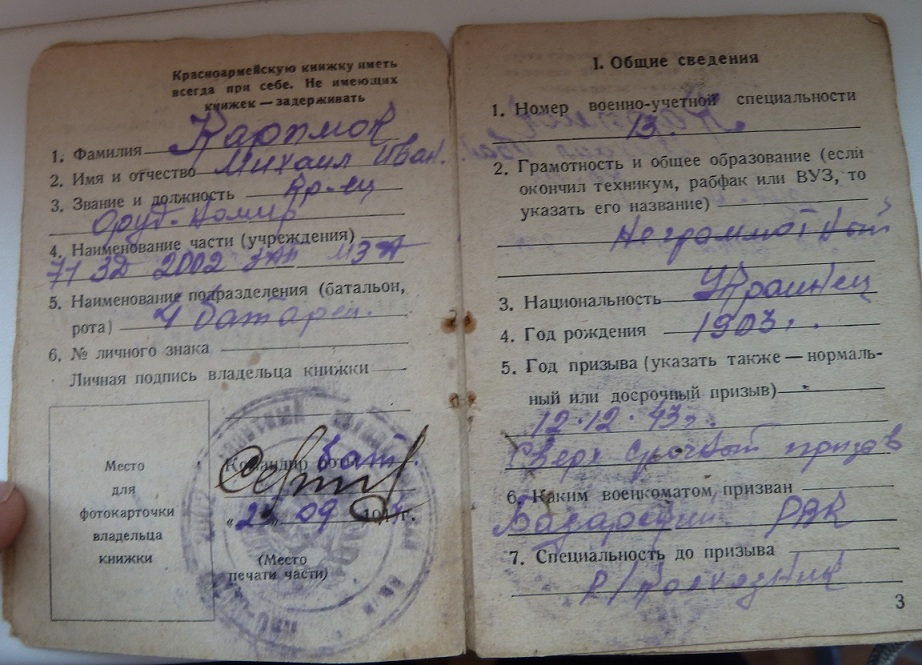 Красноармейскую книжку иметь
всегда при себе. Не имеющих
книжек — задерживать
1. Фамилия Каримов
2. Имя и отчество Михаил Иван.
3. Звание и должность Кр-ец
Оруд-номир
4. Наименование части (учреждения)
71 2002
5. Наименование подразделения (батальон,
рота) 4 батарея.
6. № личного знака
Личная подпись владельца книжки
Место
для
фотокарточки
владельца
книжки
Командир роты бат.
«25» 09 194 г.
(Место
печати части)
I. Общие сведения
1. Номер военно-учетной специальности
13.
2. Грамотность и общее образование (если
окончил техникум, рабфак или ВУЗ, то
указать его название)
Неграмотный
3. Национальность Украинец
4. Год рождения 1903г.
5. Год призыва (указать также — нормаль-
ный или досрочный призыв)
12.12.43г.
Сверх срочный призыв
6. Каким военкоматом призван
РВК
7. Специальность до призыва
колхозник
3